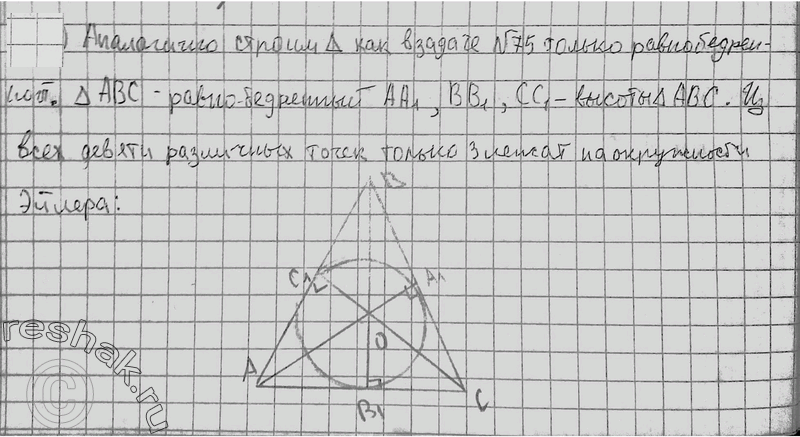 ) Аналогично строим Δ как в задаче №75 только равнобедрен-
ный. Δ ABC - равнобедренный AA1, BB1, CC1 - высоты Δ ABC. Из
всех девяти различных точек только 3 лежат на окружности
Эйлера:
B
C1
A1
O
A
B1
C
reshak.ru
©